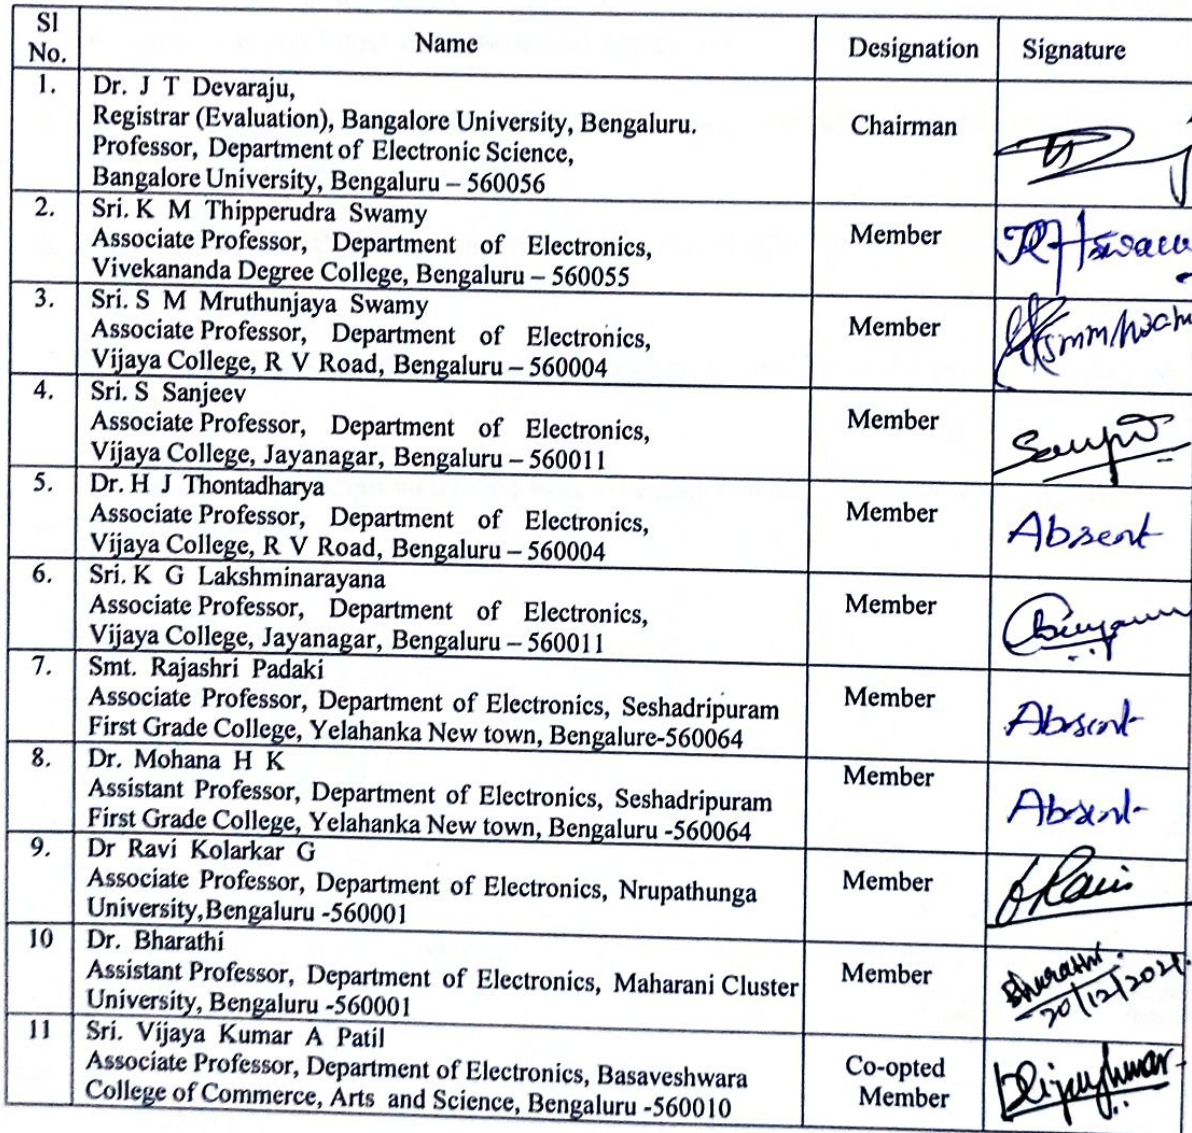 Sl No. Name Designation Signature
1. Dr. J T Devaraju,
Registrar (Evaluation), Bangalore University, Bengaluru. Chairman
Professor, Department of Electronic Science,
Bangalore University, Bengaluru – 560056
2. Sri. K M Thipperudra Swamy
Associate Professor, Department of Electronics, Member
Vivekananda Degree College, Bengaluru – 560055
3. Sri. S M Mruthunjaya Swamy
Associate Professor, Department of Electronics, Member
Vijaya College, R V Road, Bengaluru – 560004
4. Sri. S Sanjeev
Associate Professor, Department of Electronics, Member
Vijaya College, Jayanagar, Bengaluru – 560011
5. Dr. H J Thontadharya
Associate Professor, Department of Electronics, Member Absent
Vijaya College, R V Road, Bengaluru – 560004
6. Sri. K G Lakshminarayana
Associate Professor, Department of Electronics, Member
Vijaya College, Jayanagar, Bengaluru – 560011
7. Smt. Rajashri Padaki
Associate Professor, Department of Electronics, Seshadripuram Member Absent
First Grade College, Yelahanka New town, Bengalure-560064
8. Dr. Mohana H K Member
Assistant Professor, Department of Electronics, Seshadripuram Absent
First Grade College, Yelahanka New town, Bengaluru -560064
9. Dr Ravi Kolarkar G
Associate Professor, Department of Electronics, Nrupathunga Member
University,Bengaluru -560001
10 Dr. Bharathi
Assistant Professor, Department of Electronics, Maharani Cluster Member Bharathi
University, Bengaluru -560001 20/12/2021
11 Sri. Vijaya Kumar A Patil
Associate Professor, Department of Electronics, Basaveshwara Co-opted
College of Commerce, Arts and Science, Bengaluru -560010 Member